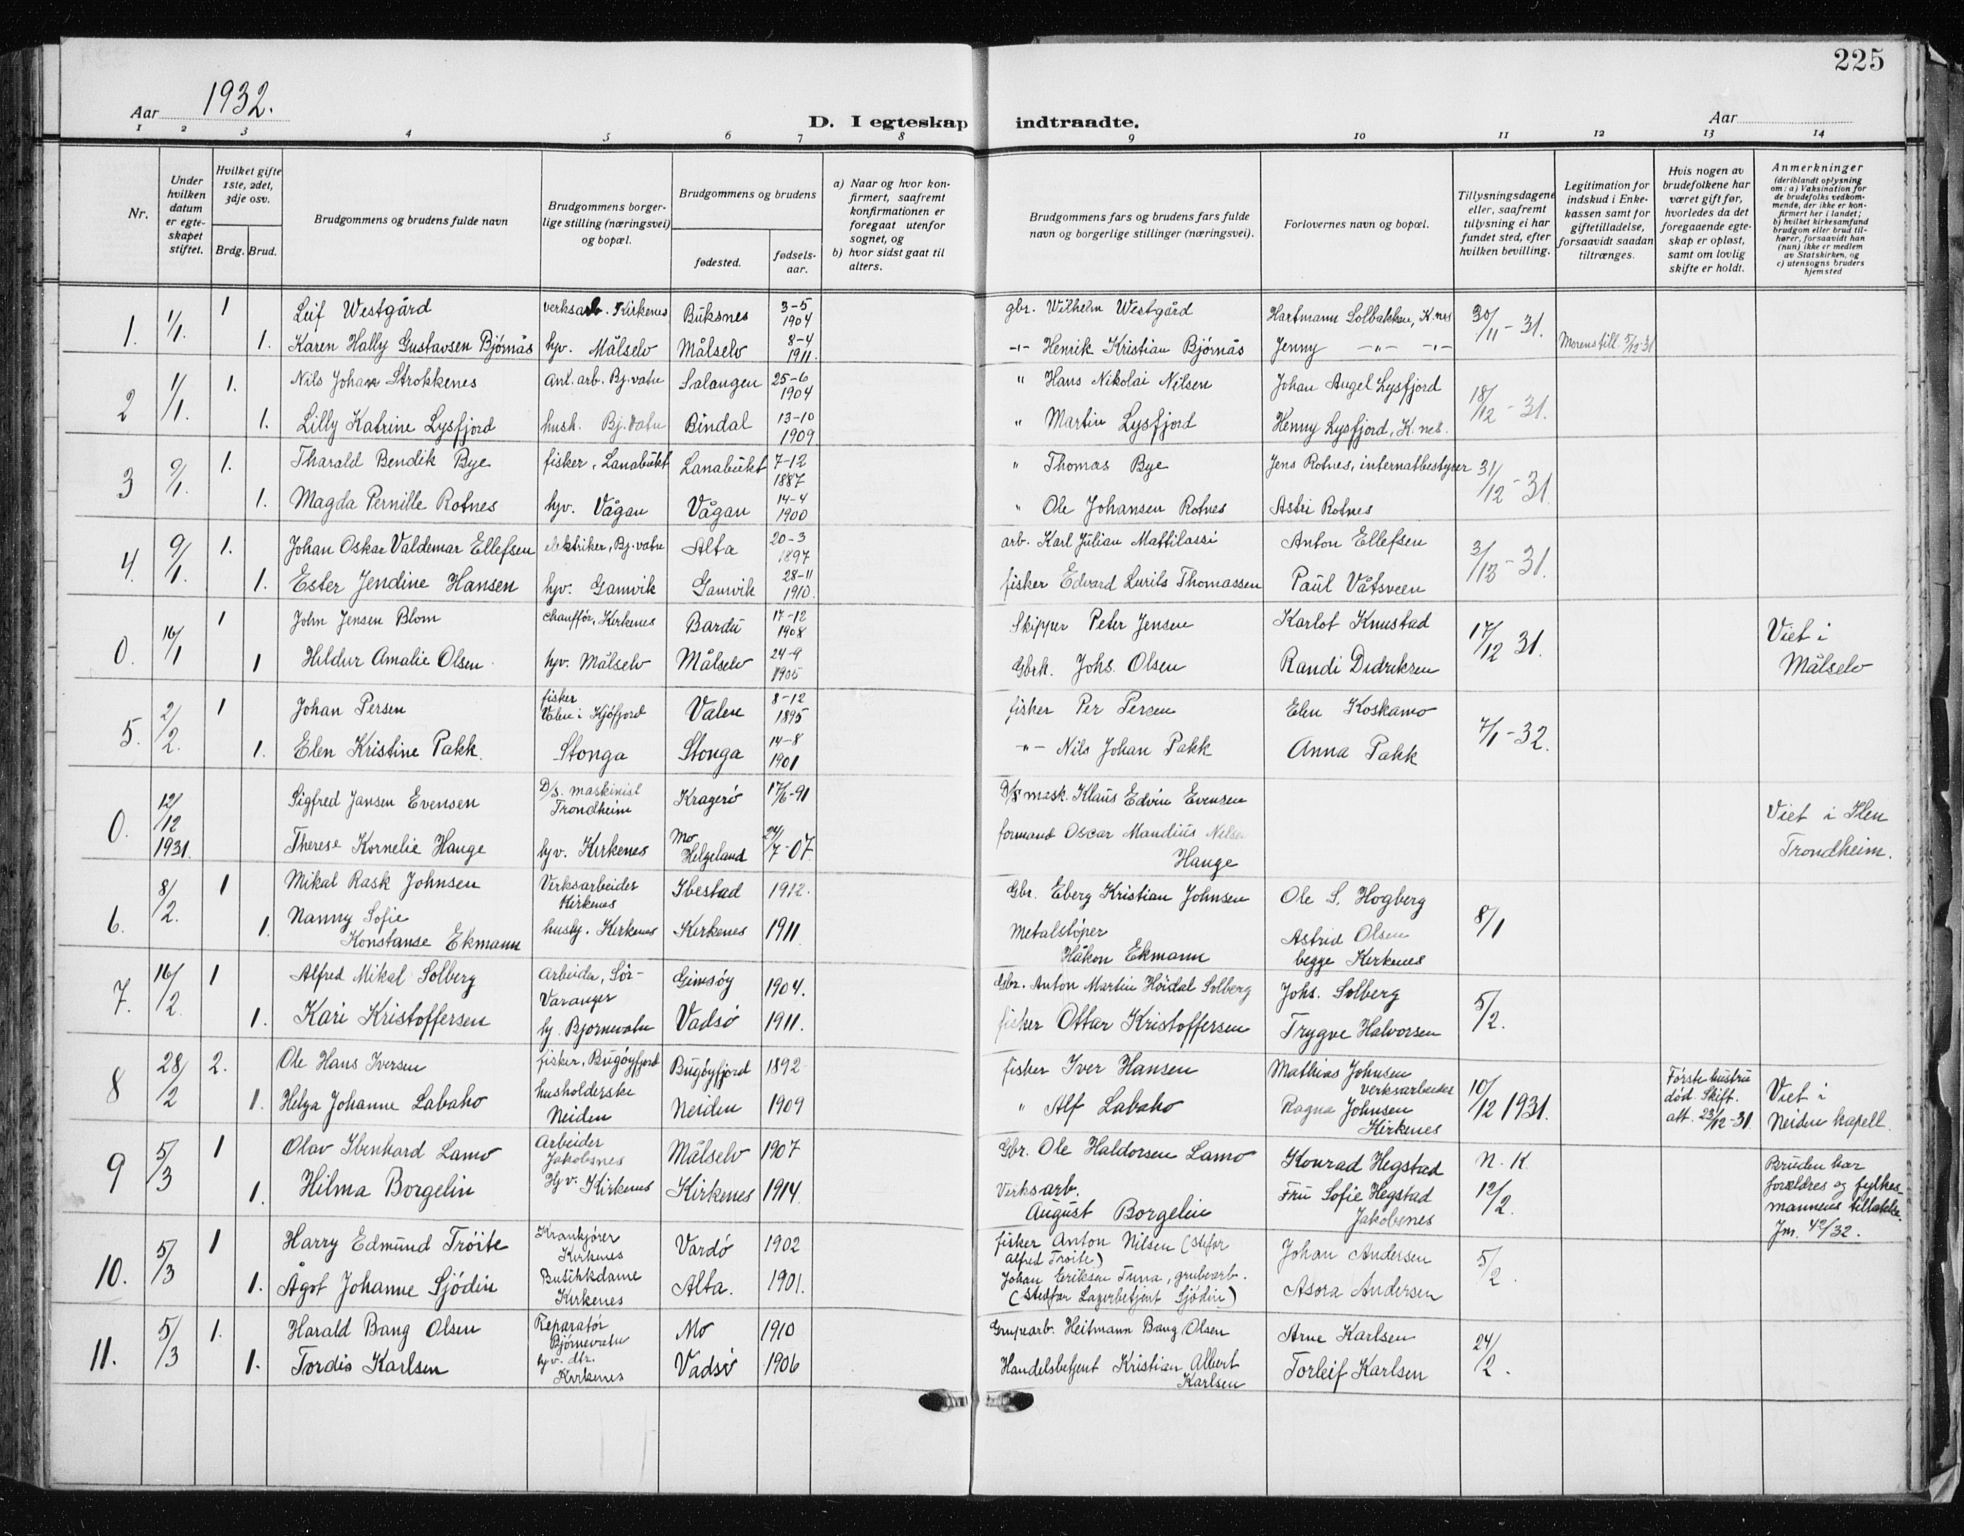 225
Aar 1932.
D. I egteskap indtraadte.
Aar
1 2 3 4 5 6 7 8 9 10 11 12 13 14
Nr.
Under hvilken datum er egteskapet stiftet.
Hvilket gifte 1ste, 2det, 3dje osv.
Brdg. Brud.
Brudgommens og brudens fulde navn
Brudgommens borgerlige stilling (næringsvei) og bopæl.
Brudgommens og brudens
fødested.
fødselsaar.
a) Naar og hvor konfirmert, saafremt konfirmationen er foregaat utenfor sognet, og
b) hvor sidst gaat til alters.
Brudgommens fars og brudens fars fulde navn og borgerlige stillinger (næringsvei).
Forlovernes navn og bopæl.
Tillysningsdagene eller, saafremt tillysning ei har fundet sted, efter hvilken bevilling.
Legitimation for indskud i Enkekassen samt for giftetilladelse, forsaavidt saadan tiltrænges.
Hvis nogen av brudefolkene har været gift før, hvorledes da det foregaaende egteskap er opløst, samt om lovlig skifte er holdt.
Anmerkninger (deriblandt oplysning om: a) Vaksination for de brudefolks vedkommende, der ikke er konfirmert her i landet; b) hvilket kirkesamfund brudgom eller brud tilhører, forsaavidt han (hun) ikke er medlem av Statskirken, og c) utensogns bruders hjemsted
1. 1/1 1 Leif Westgård verksarb. Kirkenes Buksnes 3-5 1904 gbr. Wilhelm Westgård Hartmann Solbakken, K.nes 30/11-31.
1. Karen Hally Gustavsen Bjørnås hjv. Målselv Målselv 8-4 1911. -"- Henrik Kristian Bjørnås Jenny -"- -"- Morens till. 5/12-31
2 1/1 1. Nils Johan Strokkenes Anl. arb. Bj.vatn Salangen 25-6 1904 " Hans Nikolai Nilsen Johan Angel Lysfjord 18/12-31.
1. Lilly Katrine Lysfjord hush. Bj.vatn Bindal 13-10 1909 " Martin Lysfjord Henny Lysfjord, K.nes.
3 9/1 1. Tharald Bendik Bye fisker, Lanabukt Lanabukt 7-12 1887 " Thomas Bye Jens Rotnes, internatbestyrer 31/12-31.
1. Magda Pernille Rotnes hjv. Vågan Vågan 14-4 1900 " Ole Johansen Rotnes Astri Rotnes
4. 9/1 1. Johan Oskar Valdemar Ellefsen elektriker, Bj.vatn Alta 20-3 1897 arb. Karl Julian Mattilassi Anton Ellefsen 3/13-31.
1. Ester Jendine Hansen hjv. Gamvik Gamvik 28-11 1910. fisker Edvard Lurits Thomassen Paul Våtsveen
0. 16/1 1 John Jensen Blom chauffør, Kirkenes Bardu 17-12 1908 Skipper Peter Jensen Karlot Knustad 17/12 31. Viet i
1 Hildur Amalie Olsen. hjv. Målselv Målselv 24-9 1905 Gbrk. Johs. Olsen Randi Didriksen Målselv
5. 2/2 1 Johan Persen fisker Valen i Kjøfjord Valen 8-12 1895 fisker Per Persen Elen Koskamo 7/1-32.
1. Elen Kristine Pakk. Stonga Stonga 14-8 1901 -"- Nils Johan Pakk Anna Pakk
0. 12/12 1931. Sigfred Jansen Evensen D/s. maskinist Trondheim Kragerø 17/6-91 D/s mask. Klaus Edvin Evensen Viet i Ilen
Therese Kornelie Hauge hjv. Kirkenes Mo Helgeland 24/7-07. formand Oscar Mandius Nilsen Hauge Trondheim.
6. 8/2 1 Mikal Rask Johnsen Verksarbeider Kirkenes Ibestad 1912. Gbr. Eberg Kristian Johnsen Ole S. Hogberg 8/1
1. Nanny Sofie Konstanse Ekmann husly. Kirkenes Kirkenes 1911 Metalstøper Håkon Ekmann Astrid Olsen begge Kirkenes
7. 16/2 1 Alfred Mikal Solberg arbeider, Sør-Varanger Gimsøy 1904. Gbr. Anton Martin Høidal Solberg Johs. Solberg 5/2.
1. Kari Kristoffersen hj. Bjørnevatn Vadsø 1911. fisker Ottar Kristoffersen Trygve Halvorsen
8 28/2 2. Ole Hans Iversen fisker, Bugøyfjord Bugøyfjord 1892 fisker Iver Hansen Mathias Johnsen verksarbeider 10/12 1931. Første hustru død. Skift. att. 23/12-31 Viet i
1. Helga Johanne Labaho husholderske Neiden Neiden 1909 " Alf Labaho Ragna Johnsen Kirkenes Neiden kapell.
9 5/3 1 Olav Ibenhard Lamo Arbeider Jakobsnes Målselv 1907 Gbr. Ole Haldorsen Lamo Konrad Hegstad N. K. Bruden har forældres og fylkesmannens tillatelse. Jnr. 42/32.
1. Hilma Borgelin Hjv. Kirkenes Kirkenes 1914. Verksarb. August Borgelin Fru Sofie Hegstad Jakobsnes 12/2.
10. 5/3 1 Harry Edmund Trøite Krankjører Kirkenes Vardø 1902 fisker Anton Nilsen (stefar Alfred Trøite) Johan Andersen 5/2.
1. Ågot Johanne Sjødin Butikkdame Kirkenes Alta. 1901. Johan Eriksen Tuna, grubearb. (stefar Lagerbetjent Sjødin) Asora Andersen
11. 5/3 1. Harald Bang Olsen Reparatør Bjørnevatn Mo 1910 Grupearb. Heitmann Bang Olsen Arne Karlsen 24/2.
1. Tordis Karlsen hjv. dtr. Kirkenes Vadsø 1906 Handelsbetjent Kristian Albert Karlsen Torleif Karlsen